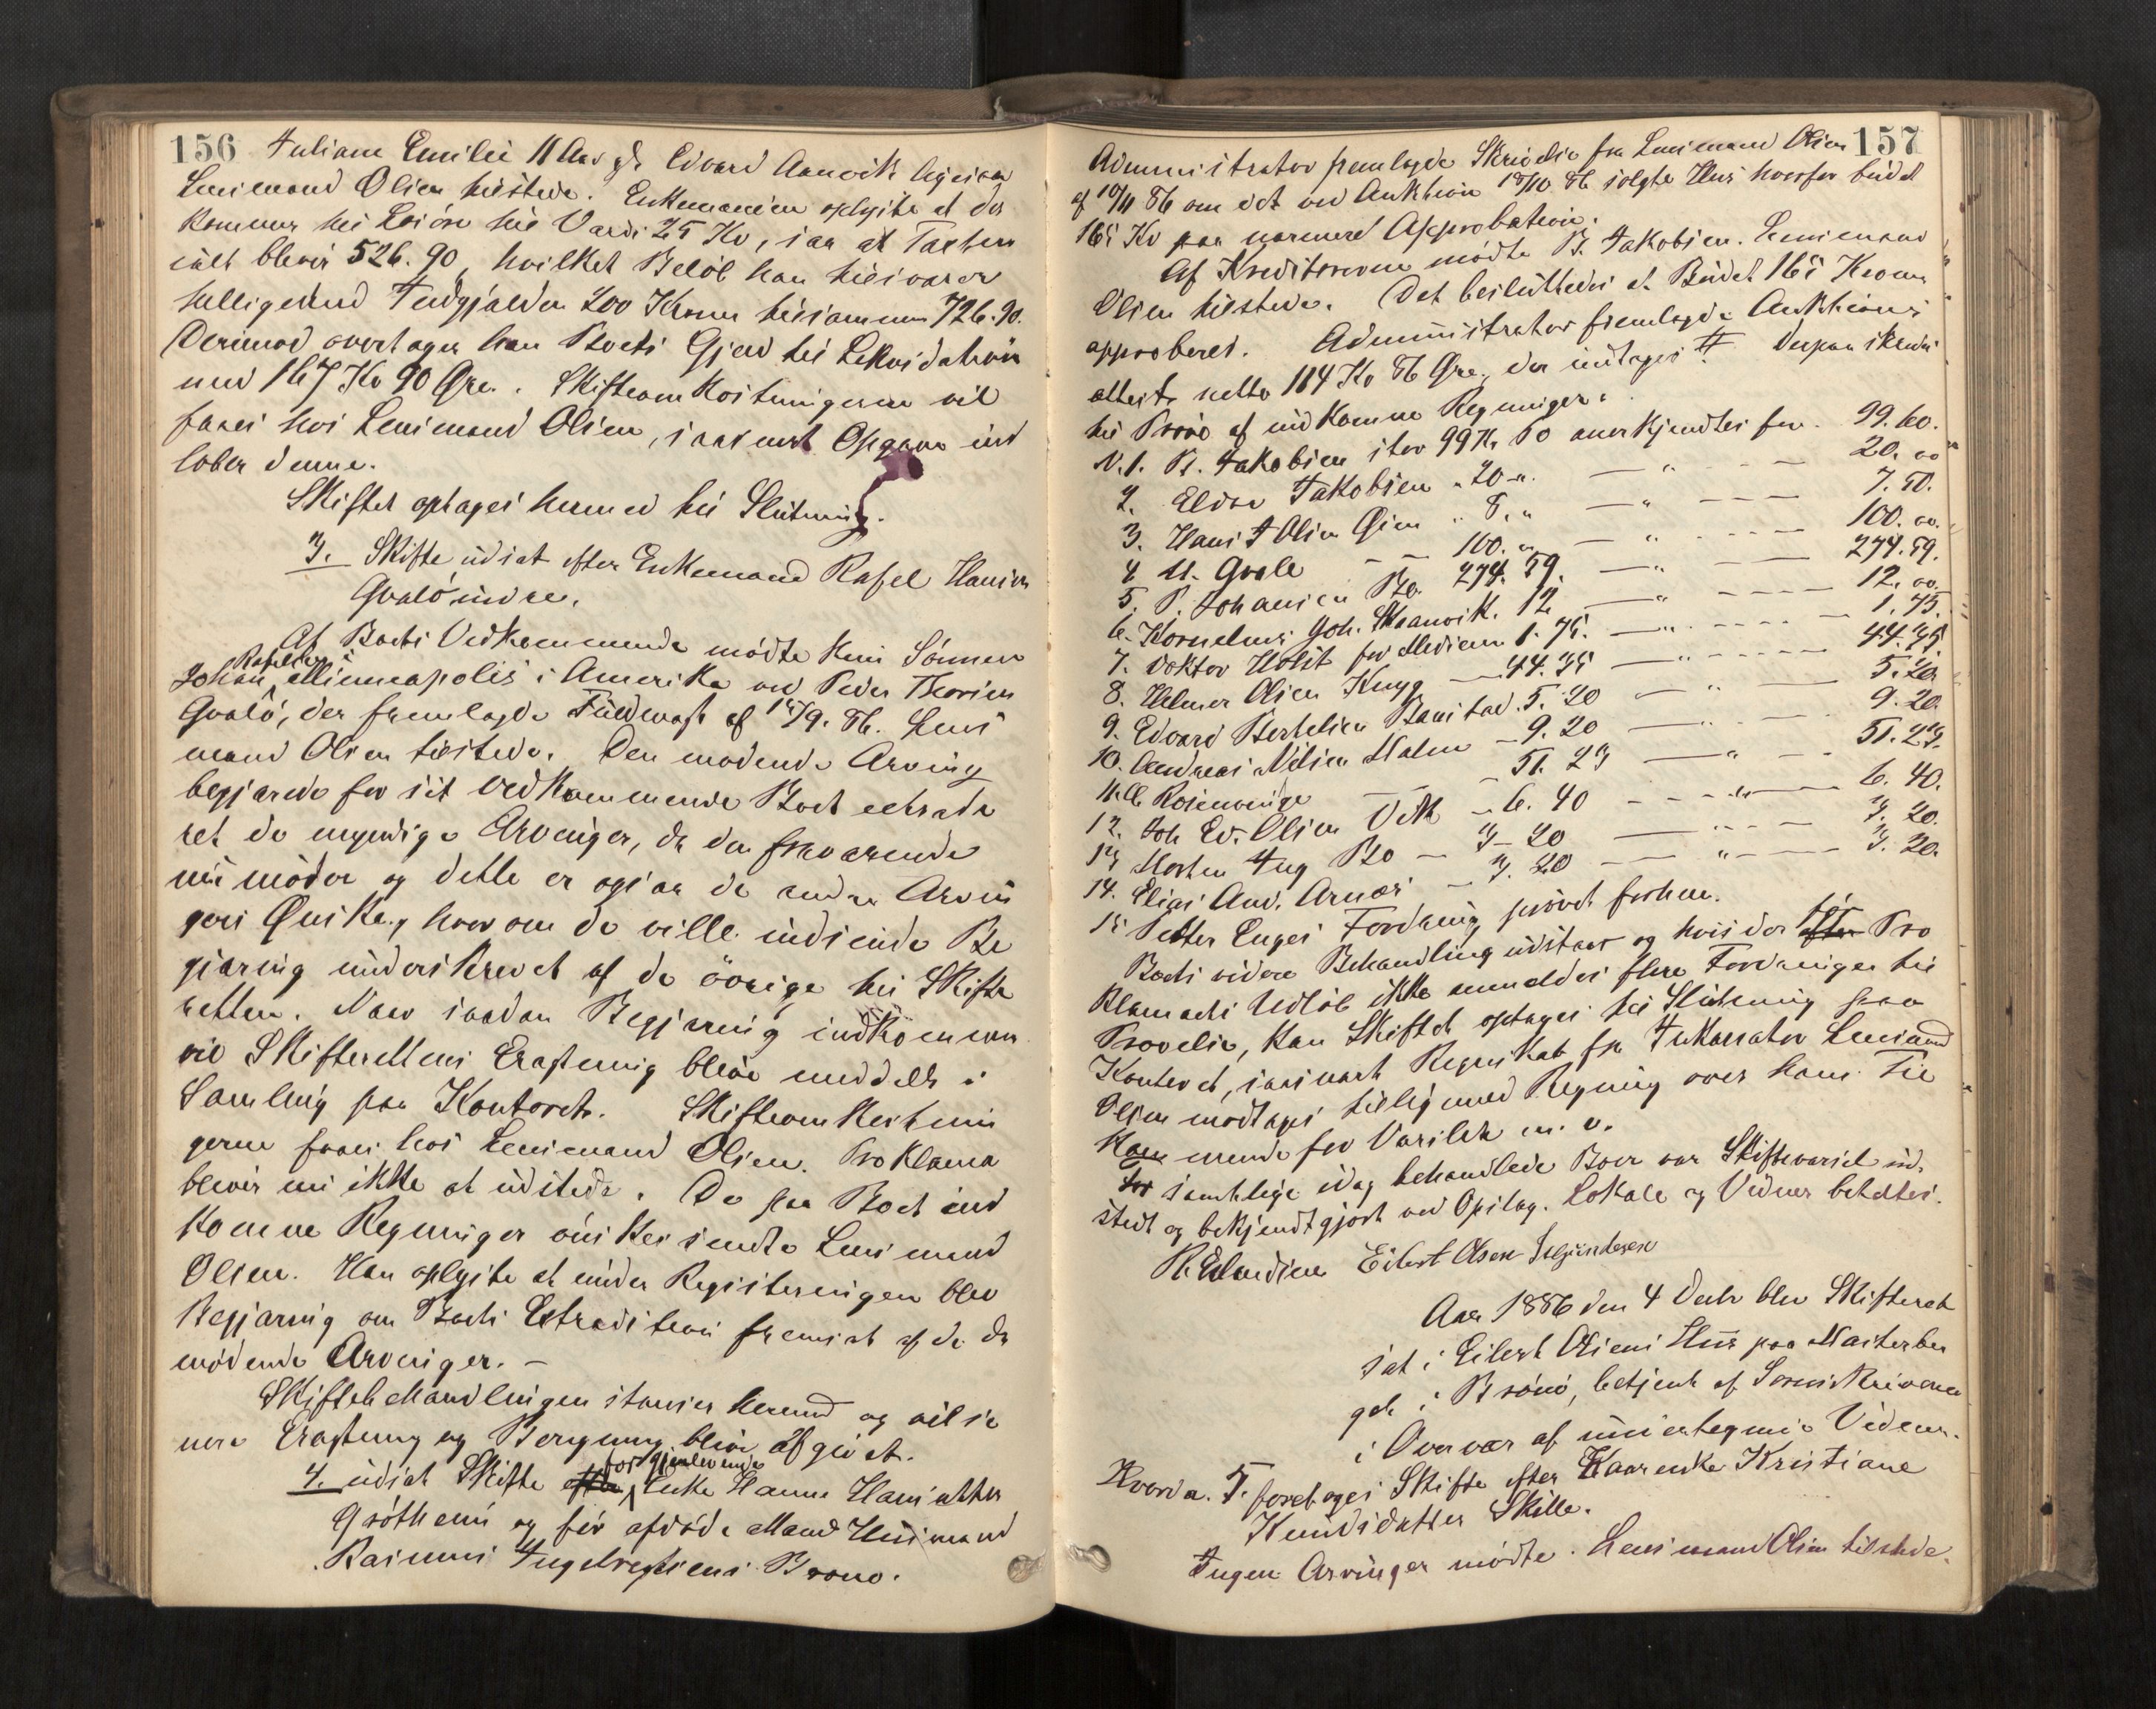 156 Juliane Emilie 11 Aar gl. Edvard Aanvik Ageisen
Lensmand Olsen tilstede. Enkemanden oplyste at der
kommer til Löisöre til Værdi 25 Kr, saa at Taxten
ialt bliver 526.90, hvilket Belöb han tilsvarer
tilligemed Indgjælden 200 Kroner tilsammen 726.90.
Derimod overtager han Boets Gjeld til Likvidation
med 167 Kr 90 Öre. Skifteomkostningerne vil
faaes hos Lensmand Olsen, saasnart Opgave ind
löber denne.
Skiftet optages hermed til Slutning.
3. Skifte udsat efter Enkemand Rafel Hansen
Qvalö indre.
Af Boets Vedkommende mödte kun Sönnen
Rafelsen
Johan, Minneapolis i Amerika ved Peder Thorsen
Qvalö, der fremlagde Fuldmagt af 15/9. 86. Lens
mand Olsen tilstede. Den mödende Arving
begjærede for sit Vedkommende Boet extrade
ret de myndige Arvinger, da den fraværende
nu möder og dette er ogsaa de andre Arvin
gers Önske, hvorom de ville indsende Be
gjæring underskrevet af de övrige til Skifte
retten. Naar saadan Begjæring indkommer
vil Skifterettens Eragtning blive meddelt i
Samling paa Kontoret. Skifteomkostnin
gerne faaes hos Lensmand Olsen. Proklama
bliver nu ikke at udstede. De paa Boet ind
komne Regninger önskes sendte Lensmand
Olsen. Han oplyste at under Registeringen blev
Begjæring om Boets Extradition fremsat af de da
mödende Arvinger. –
Skiftebehandlingen stanses hermed og vil se
nere Eragtning og Beregning blive afgivet.
for gjenlevende
4. udsat Skifte efter Enke Hanne Hansdatter
Gröttheim og for afdöde Mand Husmand
Rasmus Ingebregtsens Brönö.
157
Administrator fremlagde Skrivelse fra Lensmand Olsen
af 10/11 86 om det ved Auktion 15/10 86 solgte Hus hvorfor budt
165 Kr paa nærmere Approbation.
Af Kreditorerne mödte B. Jakobsen. Lensmand
Olsen tilstede. Det besluttedes at Budet 165 Kroner
approberes. Administrator fremlagde Auktions
attest netto 184 Kr 86 Öre, der indtages # Derpaa skredes
til Pröve af indkomne Regninger:
N.1. B. Jakobsen stor 99 Kr 60 anerkjendtes for 99.60.
2. Elvr Jakobsen " 20 " – " – 20.00
3. Hans J Olsen Öien " 8. " – " – 7.50.
4 U. Qvale – 100. " – " – 100.00.
5. P. Johansen Bro 274.59. – " – 274.59.
6. Kornelius Joh. Skaanvik. 12 – " – 12.00.
7. Doktor Holst for Medicin 1.75. – " – 1.75.
8. Helmer Olsen Knyg – 44.35 – " – 44.35.
9. Edvard Bertelsen Baustad 5.20 – " – 5.20
10. Andreas Nilsen Halm – 9.20 – " – 9.20.
11. C. Rosenvinge – 51.23 – " – 51.23.
12. Joh Ed. Olsen Vik – 6.40 – " – 6.40.
13 Morten Ing Bro – 3–20 – " – 3.20.
14. Elias And. Arnæs – 3.20 – " – 3.20.
15 Petter Enges Fordring prövet forhen.
Boets videre Behandling udstaar og hvis der efter för Pro
klamaets Udlöb ikke anmeldes flere Fordringer til
Prövelse, kan Skiftet optages til Slutning paa
Kontoret, saasnart Regnskab fra Inkassator Lensmand
Olsen modtages tillig med Regning over hans Til
kommende for Varslet m. v.
For samtlige idag behandlede Boer var Skiftevarsel ud-
stedt og bekjendtgjort ved Opslag. Lokale og Vidner betaltes.
R. Erlandsen Eilert Olsen Salgünthesen
Aar 1886 den 4 Decbr blev Skifteret
sat i Eilert Olsens Hus paa Mosterber
get i Brönö, betjent af Sorenskriveren
i Overvær af undertegnede Vidner.
Hvorda. 5. foretoges Skifte efter Kaarenke Kristiane
Knudsdatter Skille.
Ingen Arvinger mödte. Lensmand Olsen tilstede.